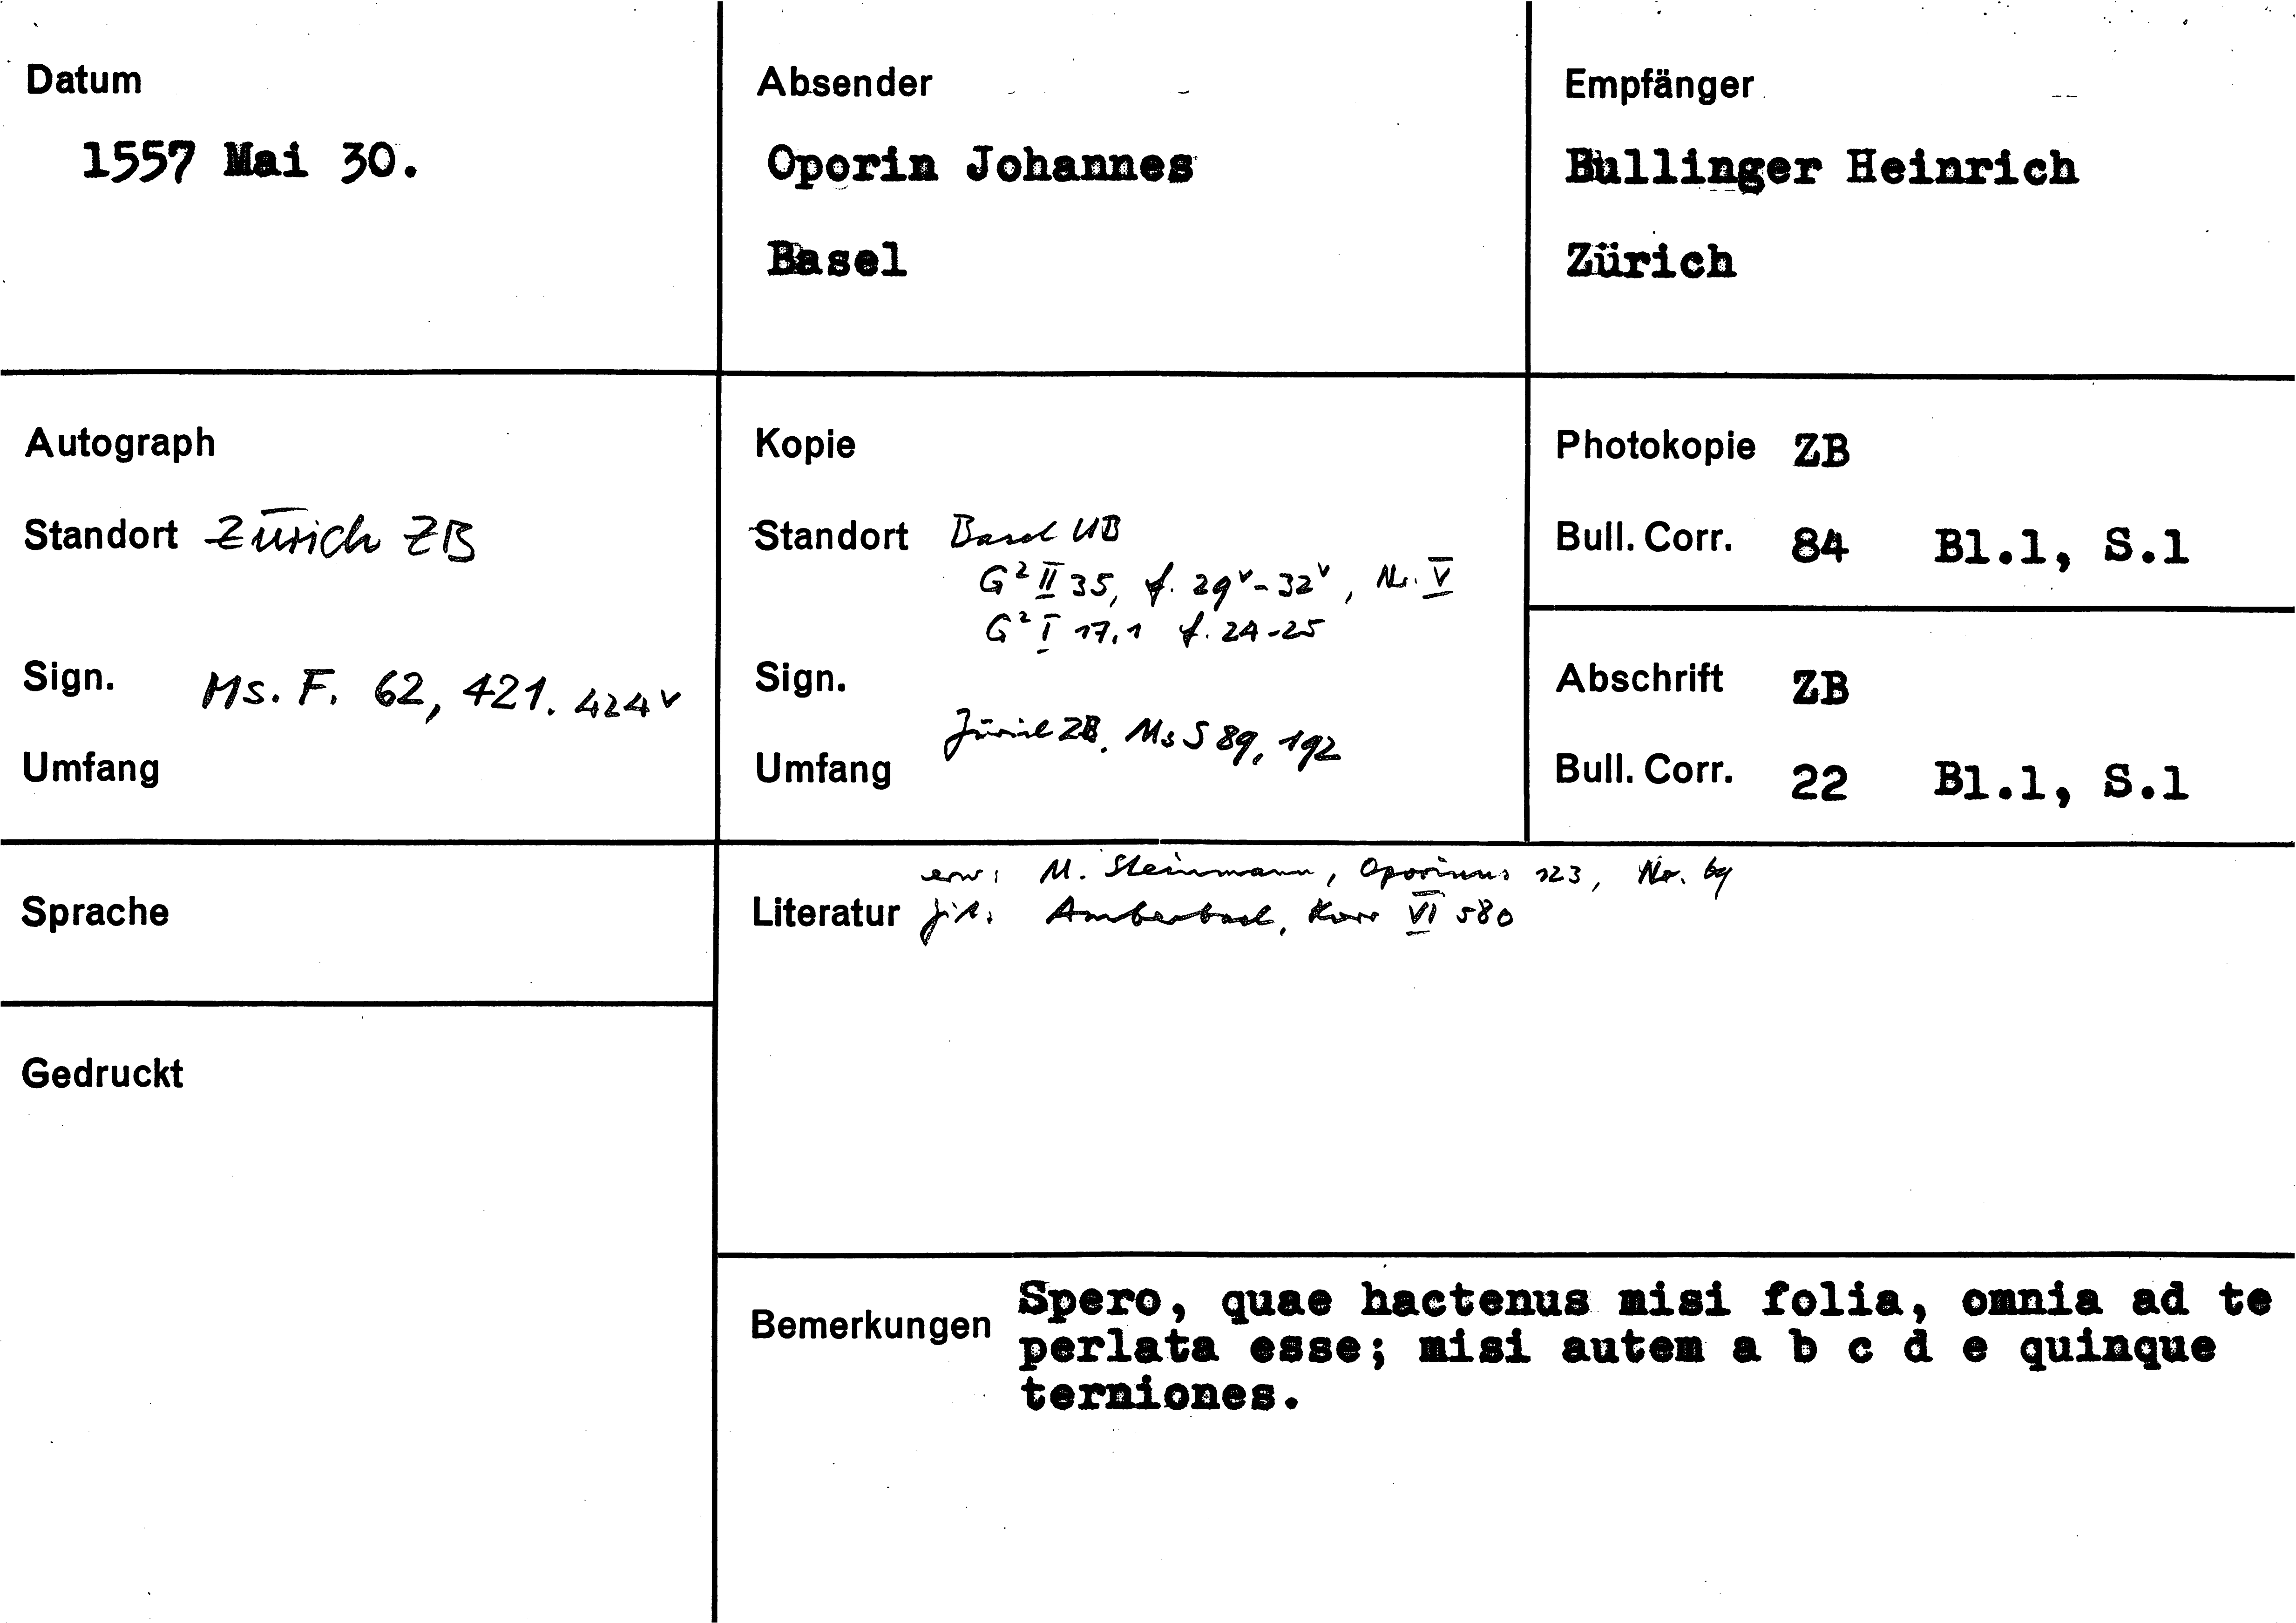 Datum
1557 Mai 30.
Absender
Oporin Johannes
Basel
Empfänger
Bullinger Heinrich
Zürich
Autograph
Standort Zürich ZB
Sign. Ms. F. 62, 421. 424v
Umfang
Kopie
Standort Basel UB
G² II 35, f. 29v-32v, Nr. V
G² I 17,1 f. 24-25
Sign.
Zürich ZB. Ms S 89, 192
Umfang
Photokopie ZB
Bull. Corr. 84 Bl.1, S.1
Abschrift ZB
Bull. Corr. 22 Bl.1, S.1
Sprache
Gedruckt
erw: M. Steinmann, Oporinus 123, Nr. 69
Literatur zit. Amerbach, Korr VI 580
Bemerkungen Spero, quae hactenus misi folia, omnia ad te
perlata esse; misi autem a b c d e quinque
terniones.